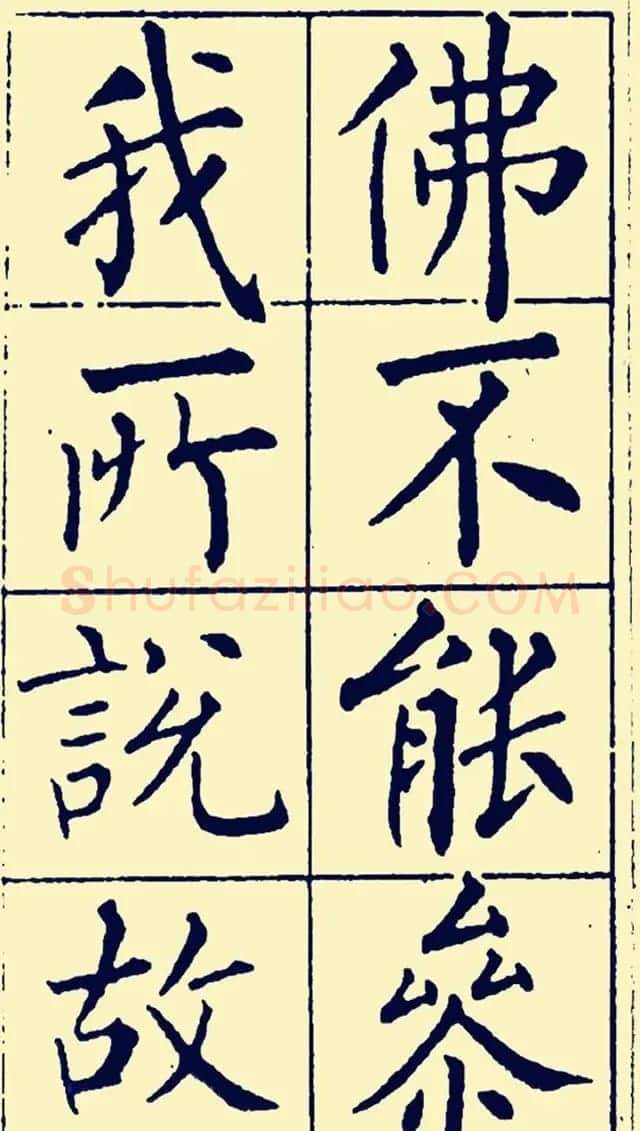 佛不能參
我所說故
Shufaziliao.COM